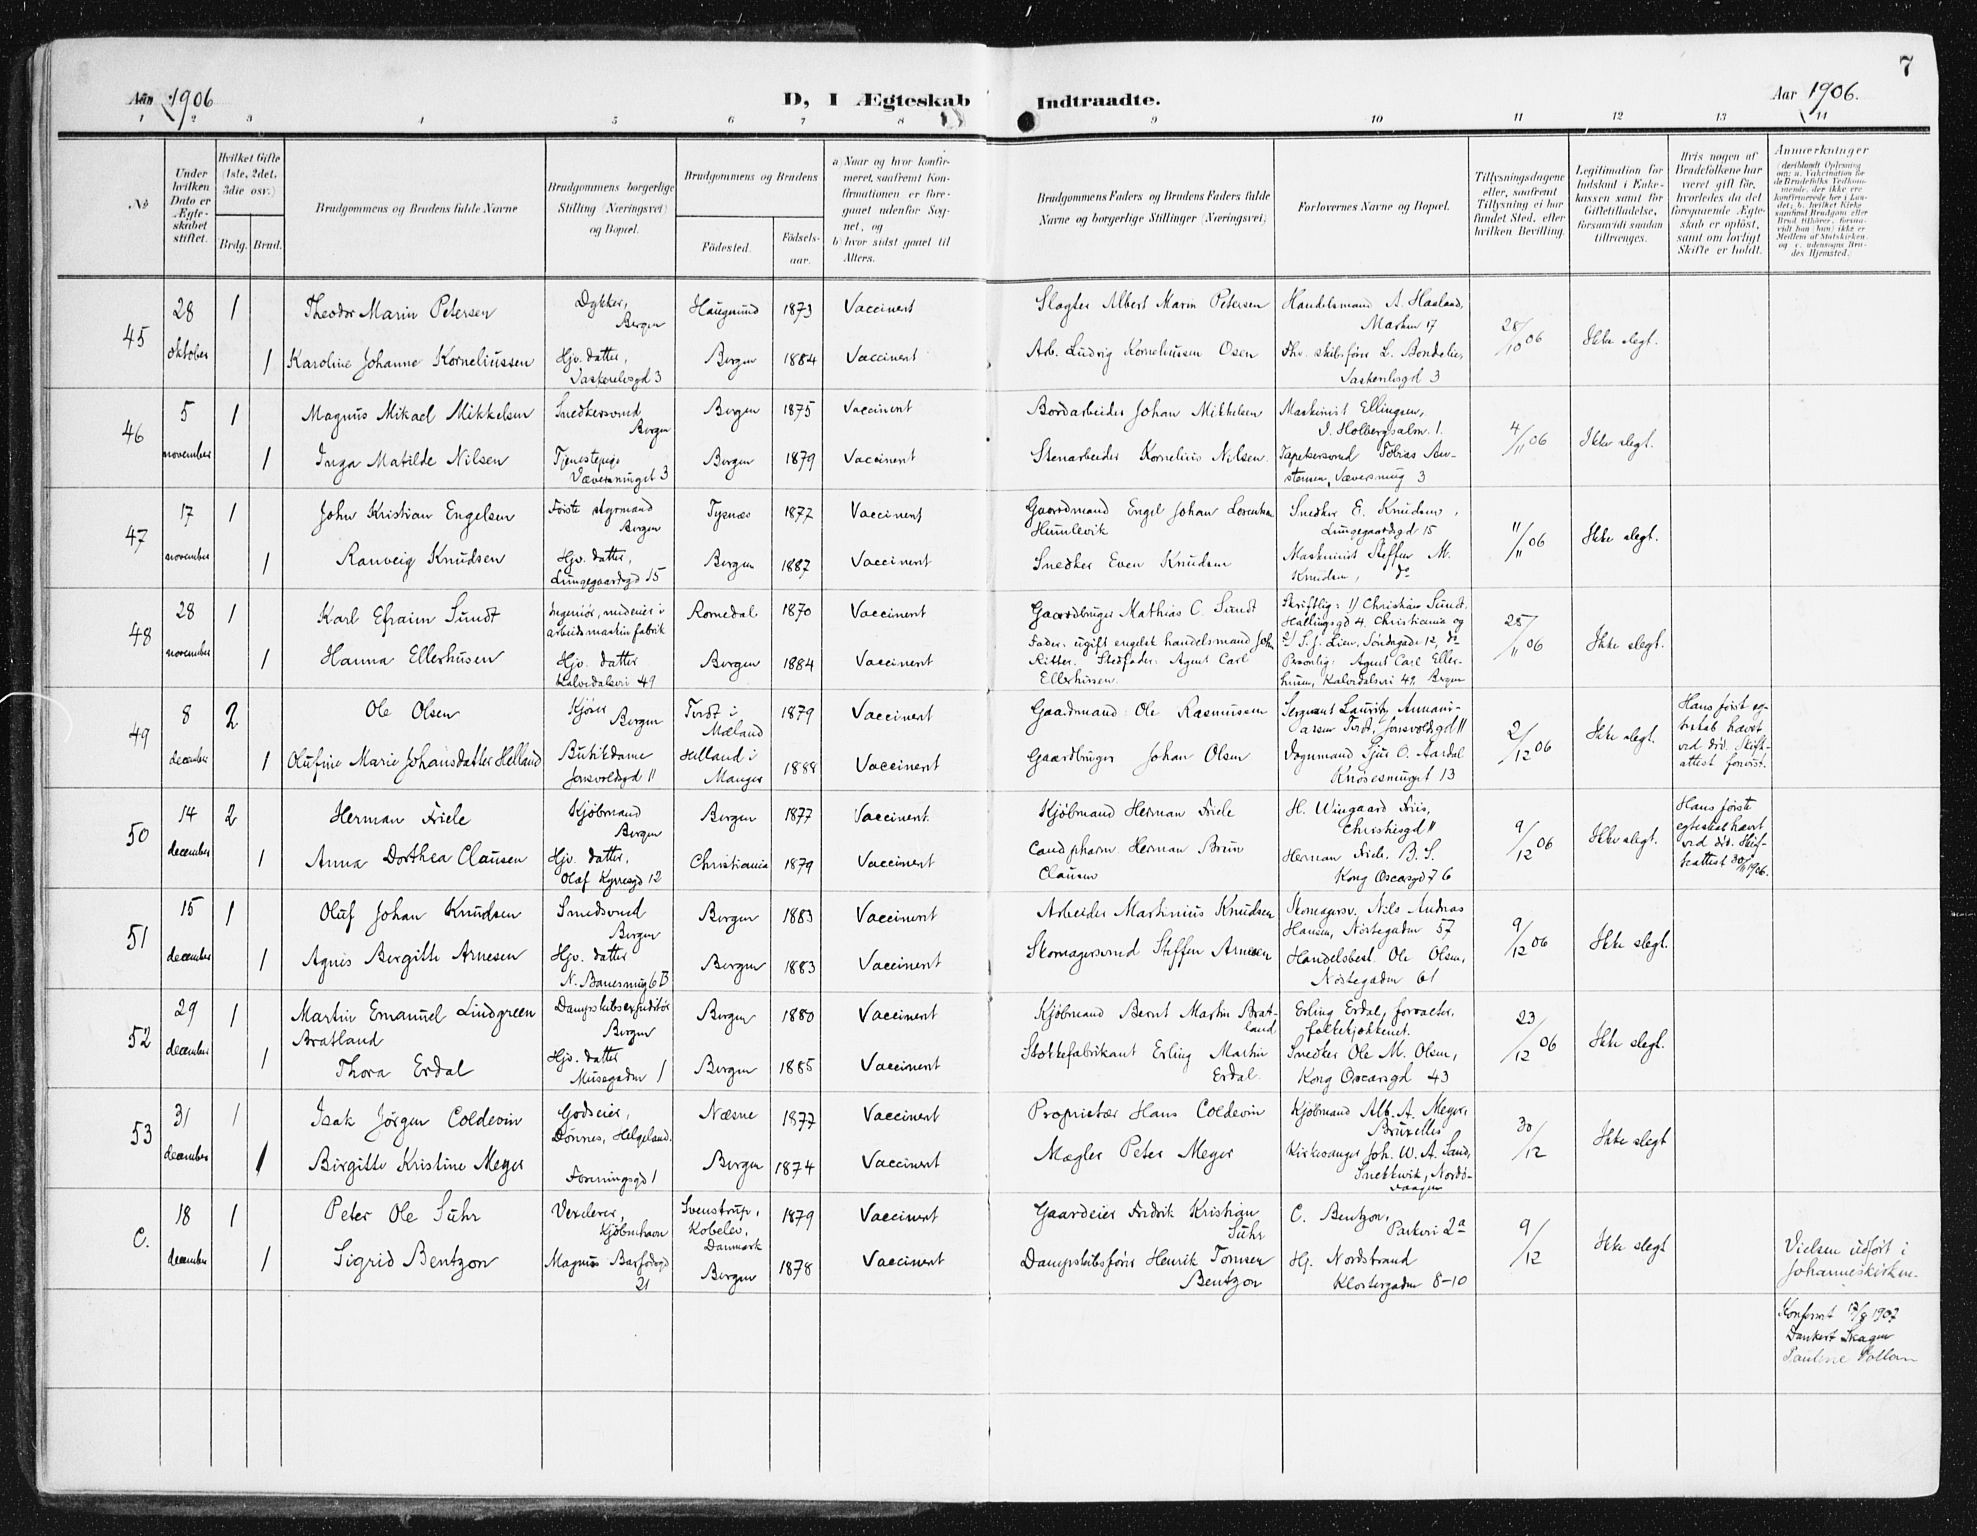 7
Aar 1906
D, I Ægteskab Indtraadte.
Aar 1906.
1 2 3 4 5 6 7 8 9 10 11 12 13 14
No
Under hvilken Dato er Ægteskabet stiftet.
Hvilket Gifte (1ste, 2det, 3die osv.)
Brdg. Brud.
Brudgommens og Brudens fulde Navne
Brudgommens borgerlige Stilling (Næringsvei) og Bopæl.
Brudgommens og Brudens
Fødested.
Fødsels-aar.
a) Naar og hvor konfirmeret, saafremt Konfirmationen er foregaaet udenfor Sognet, og
b) hvor sidst gaaet til Alters.
Brudgommens Faders og Brudens Faders fulde Navne og borgerlige Stillinger (Næringsvei)
Forlovernes Navne og Bopæl.
Tillysningsdagene eller, saafremt Tillysning ei har fundet Sted, efter hvilken Bevilling.
Legitimation for Indskud i Enkekassen samt for Giftetilladelse, forsaavidt saadan tiltrænges.
Hvis nogen af Brudefolkene har været gift før, hvorledes da det foregaaende Ægteskab er opløst, samt om lovligt Skifte er holdt.
Anmærkninger
45 28 oktober 1 Theodor Marin Petersen Dykker, Bergen Haugesund 1873 Vaccinert Slagter Albert Marin Petersen Handelsmand A. Haaland, Marken 17 28/10 06 Ikke slegt.
1 Karoline Johanne Korneliussen Hjv. datter, Vaskerelvsgd 3 Bergen 1884 Vaccinert Arb. Ludvig Korneliussen Osen Fhv. skibsfører L. Bendelies, Vaskerelvsgd 3
46 5 november 1 Magnus Mikael Mikkelsen Snedkersvend, Bergen Bergen 1875 Vaccinert Bordarbeider Johan Mikkelsen Maskinist Ellingsen, D. Holbergsalm. 1. 4/11 06 Ikke slegt.
1 Inga Matilde Nilsen Tjenestepige Bergen 1879 Vaccinert Stenarbeider Kornelius Nilsen. Tapetsersvend Tobias
47 17 november 1 John Kristian Engelsen Første styrmand Bergen Tysnæs 1877 Vaccinert Gaardmand Engel Johan Humlevik Snedker E. Knudsen, Lungegaardsgd 15 11/11 06 Ikke slegt.
1 Ranveig Knudsen Hjv. datter, Lungegaardsgd 15 Bergen 1887 Vaccinert Snedker Even Knudsen Maskinist Steffen M. Knudsen, do
48 28 november 1 Karl Efraim Sundt Ingeniør, medeier i Romedal 1870 Vaccinert Gaardbruger Mathias C. Sundt Skriftlig: 1) Christian Sundt, Hallingsgd 4, Christiania og 2) S. J. Lien, Søndagade 12, do 25/11 06 Ikke slegt.
1 Hanna Ellerhusen Hjv. datter Kalvedalsvei 49 Bergen 1884 Vaccinert Fader: ugift engelsk handelsmand John Ritter. Stedfader: Agent Carl Ellerhusen. Personlig: Agent Carl Ellerhusen, Kalvedalsvei 49, Bergen
49 8 december 2 Ole Olsen Kjører Bergen Tveit i Mæland 1879 Vaccinert Gaardmand Ole Rasmussen Sergeant Lauritz Tveit, Jonsvoldsgd 11 2/12 06 Ikke slegt. Hans først egteskab hævet ved død. Skifteattest forevist.
1 Olufine Marie Johansdatter Helland Butikdame Jonsvoldsgd 11 Helland i Manger 1888 Vaccinert Gaardbruger Johan Olsen Vognmand Sjur O. Aardal Knøsesmuget 13
50 14 december 2 Herman Friele Kjøbmand Bergen Bergen 1877 Vaccinert. Kjøbmand Herman Friele H. Wingaard Friis, Christiesgd 11 9/12 06 Ikke slegt. Hans første egteskab hævet ved død. Skifteattest 30/11 1906.
1 Anna Dorthea Clausen Hjv. datter, Olaf Kyrresgd 12 Christiania 1879 Vaccinert Cand pharm. Herman Brun Clausen Herman Friele, B. S. Kong Oscarsgd 76
51 15 december 1 Oluf Johan Knudsen Smedsvend Bergen Bergen 1883 Vaccinert Arbeider Martinius Knudsen Skomagersv. Nils Andreas Hansen, Nøstegaden 57 9/12 06 Ikke slegt.
1 Agnes Bergitte Arnesen Hjv. datter 6B Bergen 1883 Vaccinert Skomagersvend Steffen Arnesen Handelsbest. Ole Olsen, Nøstegaden 61
52 29 december 1 Martin Emanuel Lindgreen Bratland Dampskibsexpeditør Bergen Bergen 1880 Vaccinert Kjøbmand Bernt Martin Bratland Erling Erdal, forvalter, folkekjøkkenet. 23/12 06 Ikke slegt.
1 Thora Erdal Hjv. datter Musegaden 1 Bergen 1885 Vaccinert Stokkefabrikant Erling Martin Erdal Snedker Ole M. Olsen, Kong Oscarsgd 43
53 31 december 1 Isak Jørgen Coldevin Godseier, Dønnes, Helgeland. Næsne 1877 Vaccinert Proprietær Hans Coldevin Kjøbmand Alb. A. Meyer, Bruxelles 30/12 Ikke slegt
1 Birgitte Kristine Meyer Foreningsgd 1 Bergen 1874 Vaccinert Mægler Peter Meyer Kirkesanger Joh. W. A. Sand,
C. 18 december 1 Peter Ole Suhr Vexelerer, Kjøbenhavn Svenstrup, Kobelev, Danmark 1879 Vaccinert Gaardeier Fredrik Kristian Suhr C. Bentzon, Parkvei 2a 9/12 Ikke slegt
1 Sigrid Bentzon Magnus Barfodsgd 21 Bergen 1878 Vaccinert Dampskibsfører Henrik Tomsen Bentzon Hj. Nordstrand Klostergaden 8-10
Vielsen udført i Johanneskirken.
Konferert 17/8 1907
Dankert Skagen
Pauline